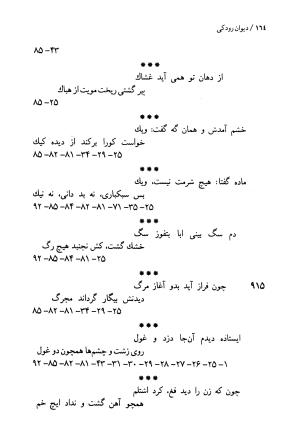 ۱۶۴ / دیوان رودکی
۴۳- ۸۵
***
از دهان تو همی آید غشاك
پیر گشتی ریخت مویت از هباك
۲۵- ۸۵
***
خشم آمدش و همان گه گفت: ویك
خواست كورا بركند از دیده كیك
۲۵- ۲۹- ۳۴- ۸۱- ۸۲- ۸۵
***
ماده گفتا: هیچ شرمت نیست، ویك
بس سبكباری، نه بد دانی، نه نیك
۲۵- ۳۵- ۷۱- ۸۱- ۸۲- ۸۴- ۸۵- ۹۲
***
دم سگ بینی ابا بتفوز سگ
خشك گشت، كش نجنبد هیچ رگ
۲۵- ۸۱- ۸۴- ۸۵- ۹۲
***
۹۱۵ چون فراز آید بدو آغاز مرگ
دیدنش بیگار گرداند مجرگ
۲۵- ۲۹- ۳۴- ۸۱- ۸۲- ۸۵
***
ایستاده دیدم آن‌جا دزد و غول
روی زشت و چشم‌ها همچون دو غول
۱- ۲۵- ۲۶- ۲۷- ۲۸- ۲۹- ۳۰- ۳۱- ۴۳- ۸۱- ۸۲- ۸۵- ۹۲
***
چون كه زن را دید فغ، كرد اشتلم
همچو آهن گشت و نداد ایچ خم